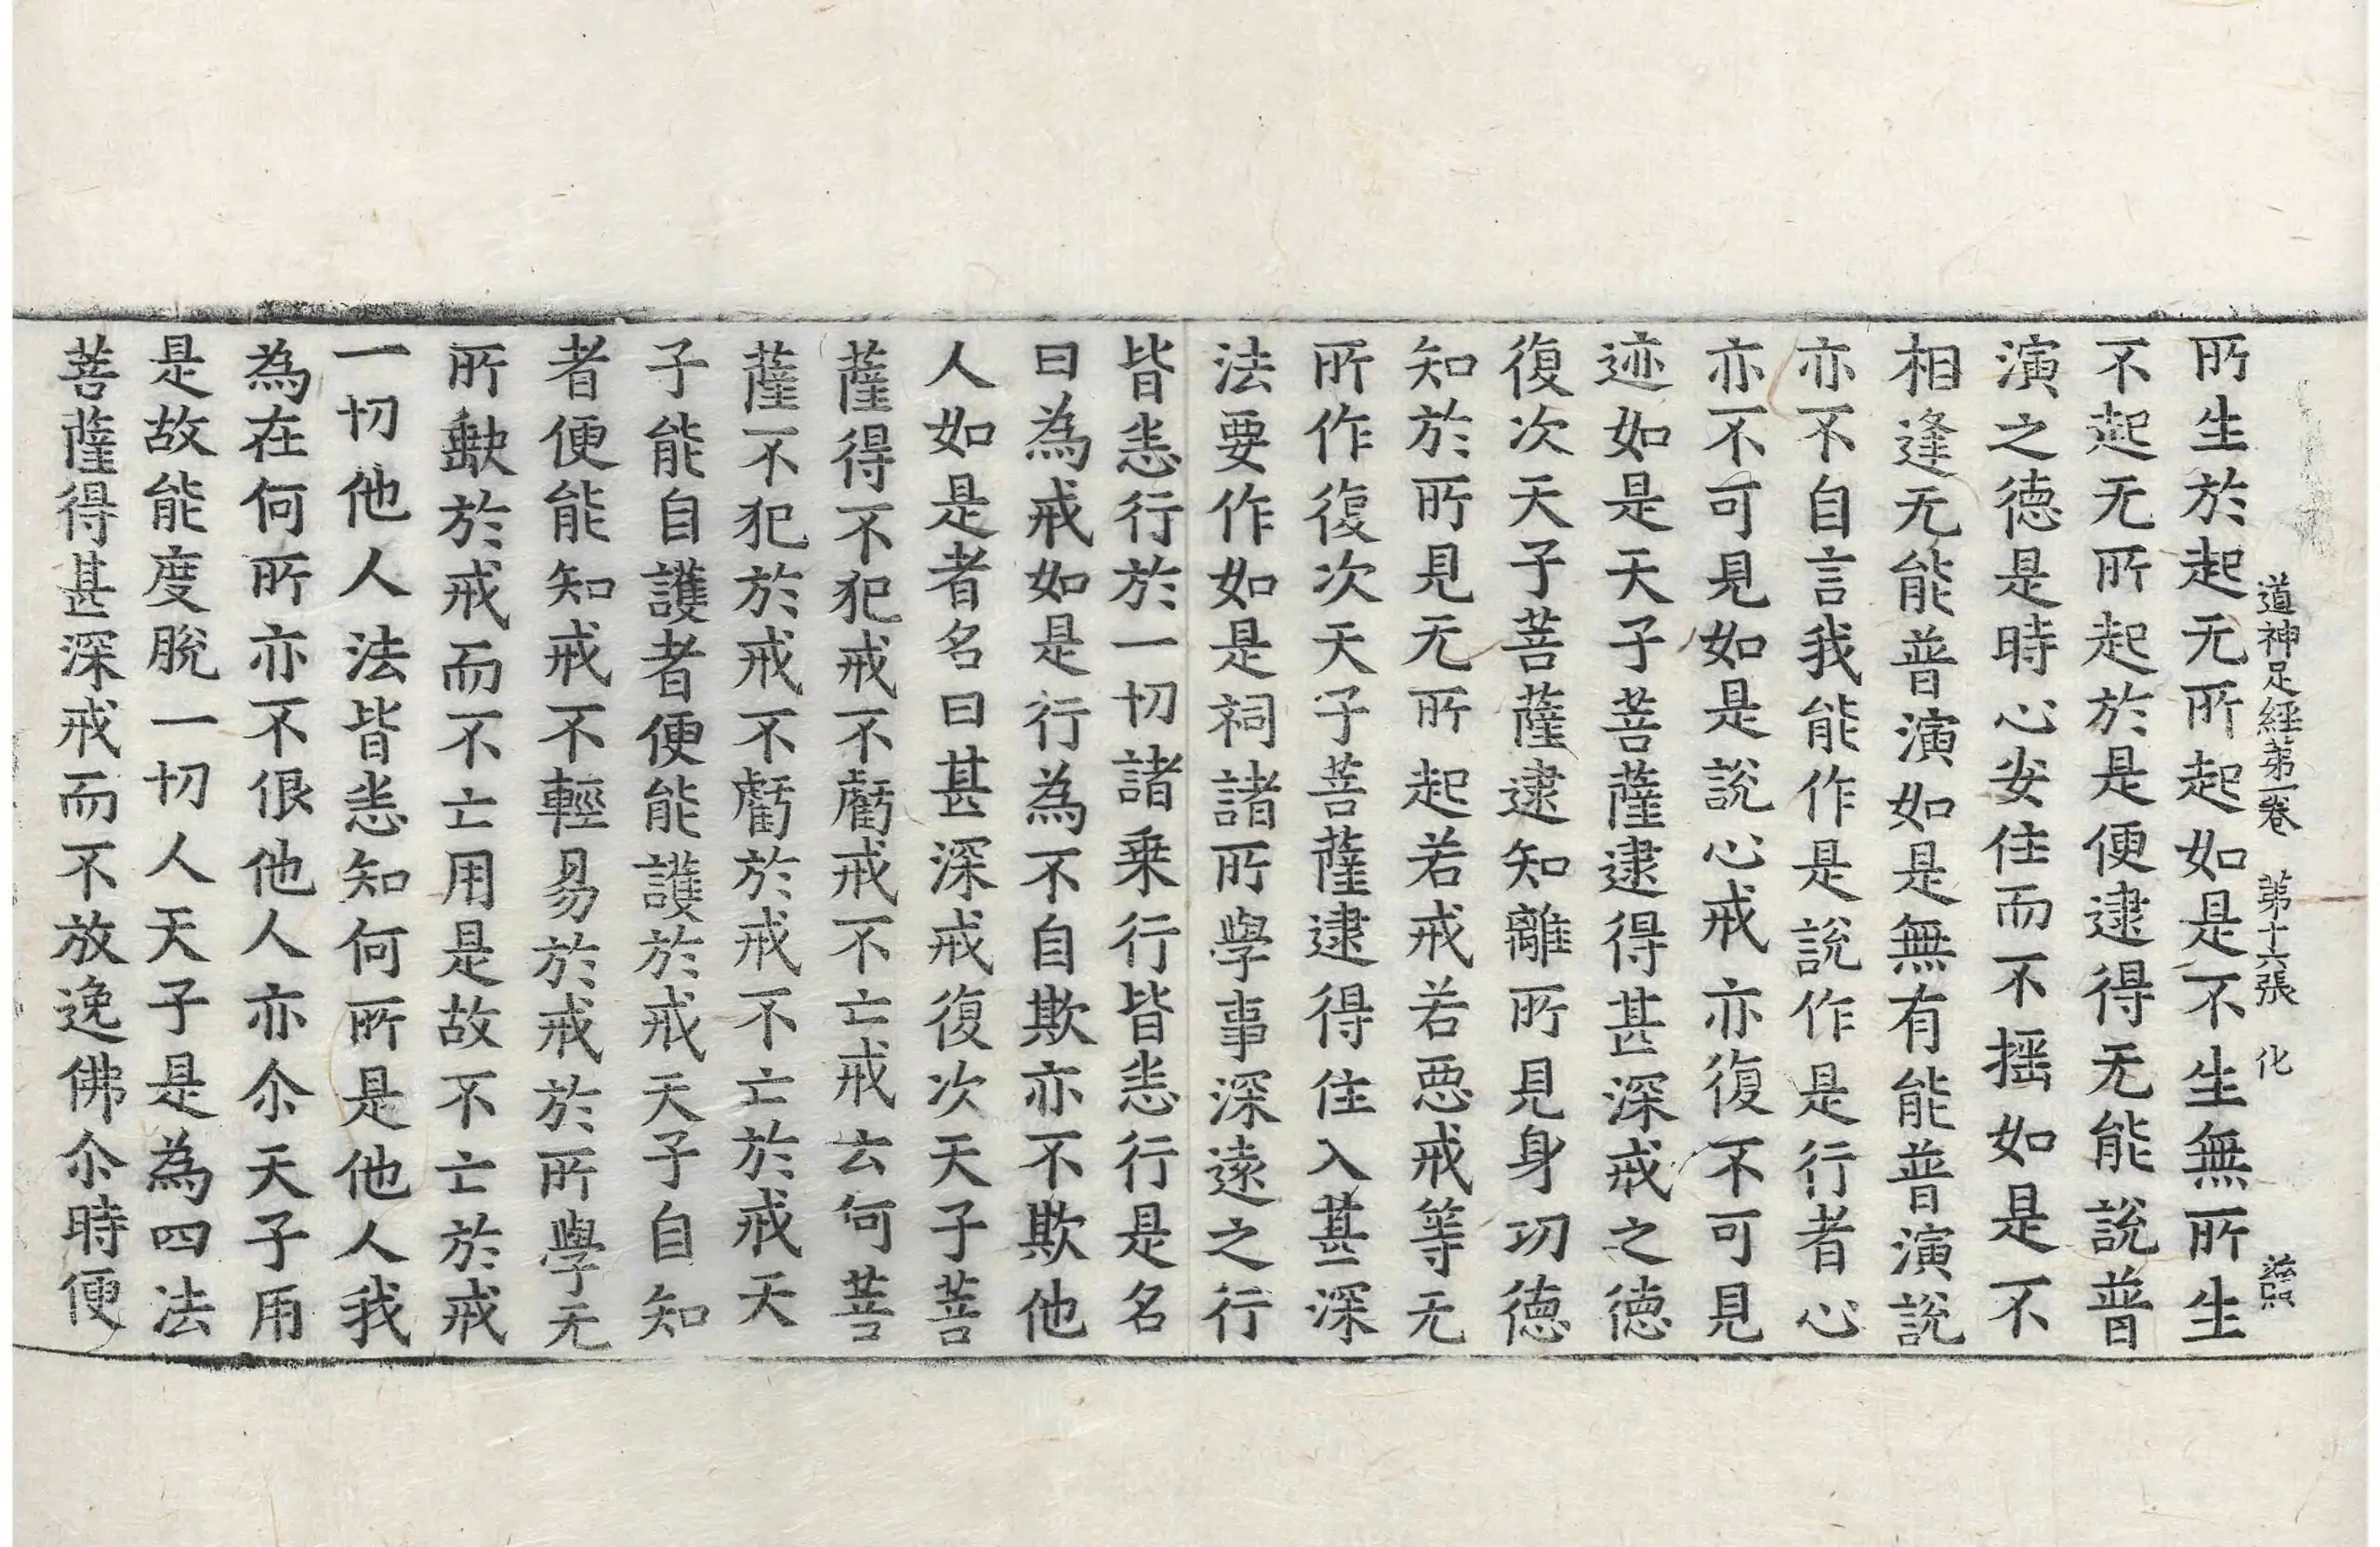 道神足經第一卷　第十六張　化
所生於起无所起如是不生無所生
不起无所起於是便逮得无能說普
演之德是時心安住而不搖如是不
相逢无能普演如是無有能普演說
亦不自言我能作是說作是行者心
亦不可見如是說心戒亦復不可見
迹如是天子菩薩逮得甚深戒之德
復次天子菩薩逮知離所見身功德
知於所見无所起若戒若惡戒等无
所作復次天子菩薩逮得住入甚深
法要作如是祠諸所學事深遠之行
皆恙行於一切諸乗行皆恙行是名
曰為戒如是行為不自欺亦不欺他
人如是者名曰甚深戒復次天子菩
薩得不犯戒不虧戒不亡戒云何菩
薩不犯於戒不虧於戒不亡於戒天
子能自護者便能護於戒天子自知
者便能知戒不輕易於戒於所學无
所缺於戒而不亡用是故不亡於戒
一切他人法皆恙知何所是他人我
為在何所亦不恨他人亦尒天子用
是故能度脫一切人天子是為四法
菩薩得甚深戒而不放逸佛尒時便